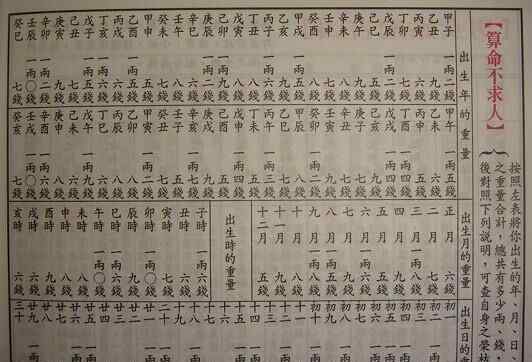 【算命不求人】
按照左表將你出生的年、月、日
之重量合計，總共有多少兩、錢，
後對照下列說明，可查自身之榮枯
出生年的重量
甲子 一兩二錢
乙丑 九錢
丙寅 六錢
丁卯 七錢
戊辰 一兩二錢
己巳 五錢
庚午 九錢
辛未 八錢
壬申 七錢
癸酉 八錢
甲戌 一兩五錢
乙亥 九錢
丙子 一兩六錢
丁丑 八錢
戊寅 八錢
己卯 一兩九錢
庚辰 一兩二錢
辛巳 六錢
壬午 八錢
癸未 七錢
甲申 五錢
乙酉 一兩五錢
丙戌 六錢
丁亥 一兩六錢
戊子 一兩五錢
己丑 七錢
庚寅 九錢
辛卯 一兩二錢
壬辰 一兩〇錢
癸巳 七錢
甲午 一兩五錢
乙未 六錢
丙申 五錢
丁酉 一兩四錢
戊戌 一兩四錢
己亥 九錢
庚子 七錢
辛丑 七錢
壬寅 九錢
癸卯 一兩二錢
甲辰 八錢
乙巳 七錢
丙午 一兩三錢
丁未 五錢
戊申 一兩四錢
己酉 五錢
庚戌 九錢
辛亥 一兩七錢
壬子 五錢
癸丑 七錢
甲寅 一兩二錢
乙卯 八錢
丙辰 八錢
丁巳 六錢
戊午 一兩九錢
己未 六錢
庚申 八錢
辛酉 一兩六錢
壬戌 一兩〇錢
癸亥 七錢
出生月的重量
正月 六錢
二月 七錢
三月 一兩八錢
四月 九錢
五月 五錢
六月 一兩六錢
七月 九錢
八月 一兩五錢
九月 一兩八錢
十月 八錢
十一月 九錢
十二月 五錢
出生時的重量
子時 一兩六錢
丑時 六錢
寅時 七錢
卯時 一兩〇錢
辰時 九錢
巳時 一兩六錢
午時 一兩〇錢
未時 八錢
申時 八錢
酉時 九錢
戌時 六錢
亥時 六錢
出生日的
初一
初二
初三
初四
初五
初六
初七
初八
初九
初十
十一
十二
十三
十四
十五
十六
十七
十八
十九
二十
廿一
廿二
廿三
廿四
廿五
廿六
廿七
廿八
廿九
三十